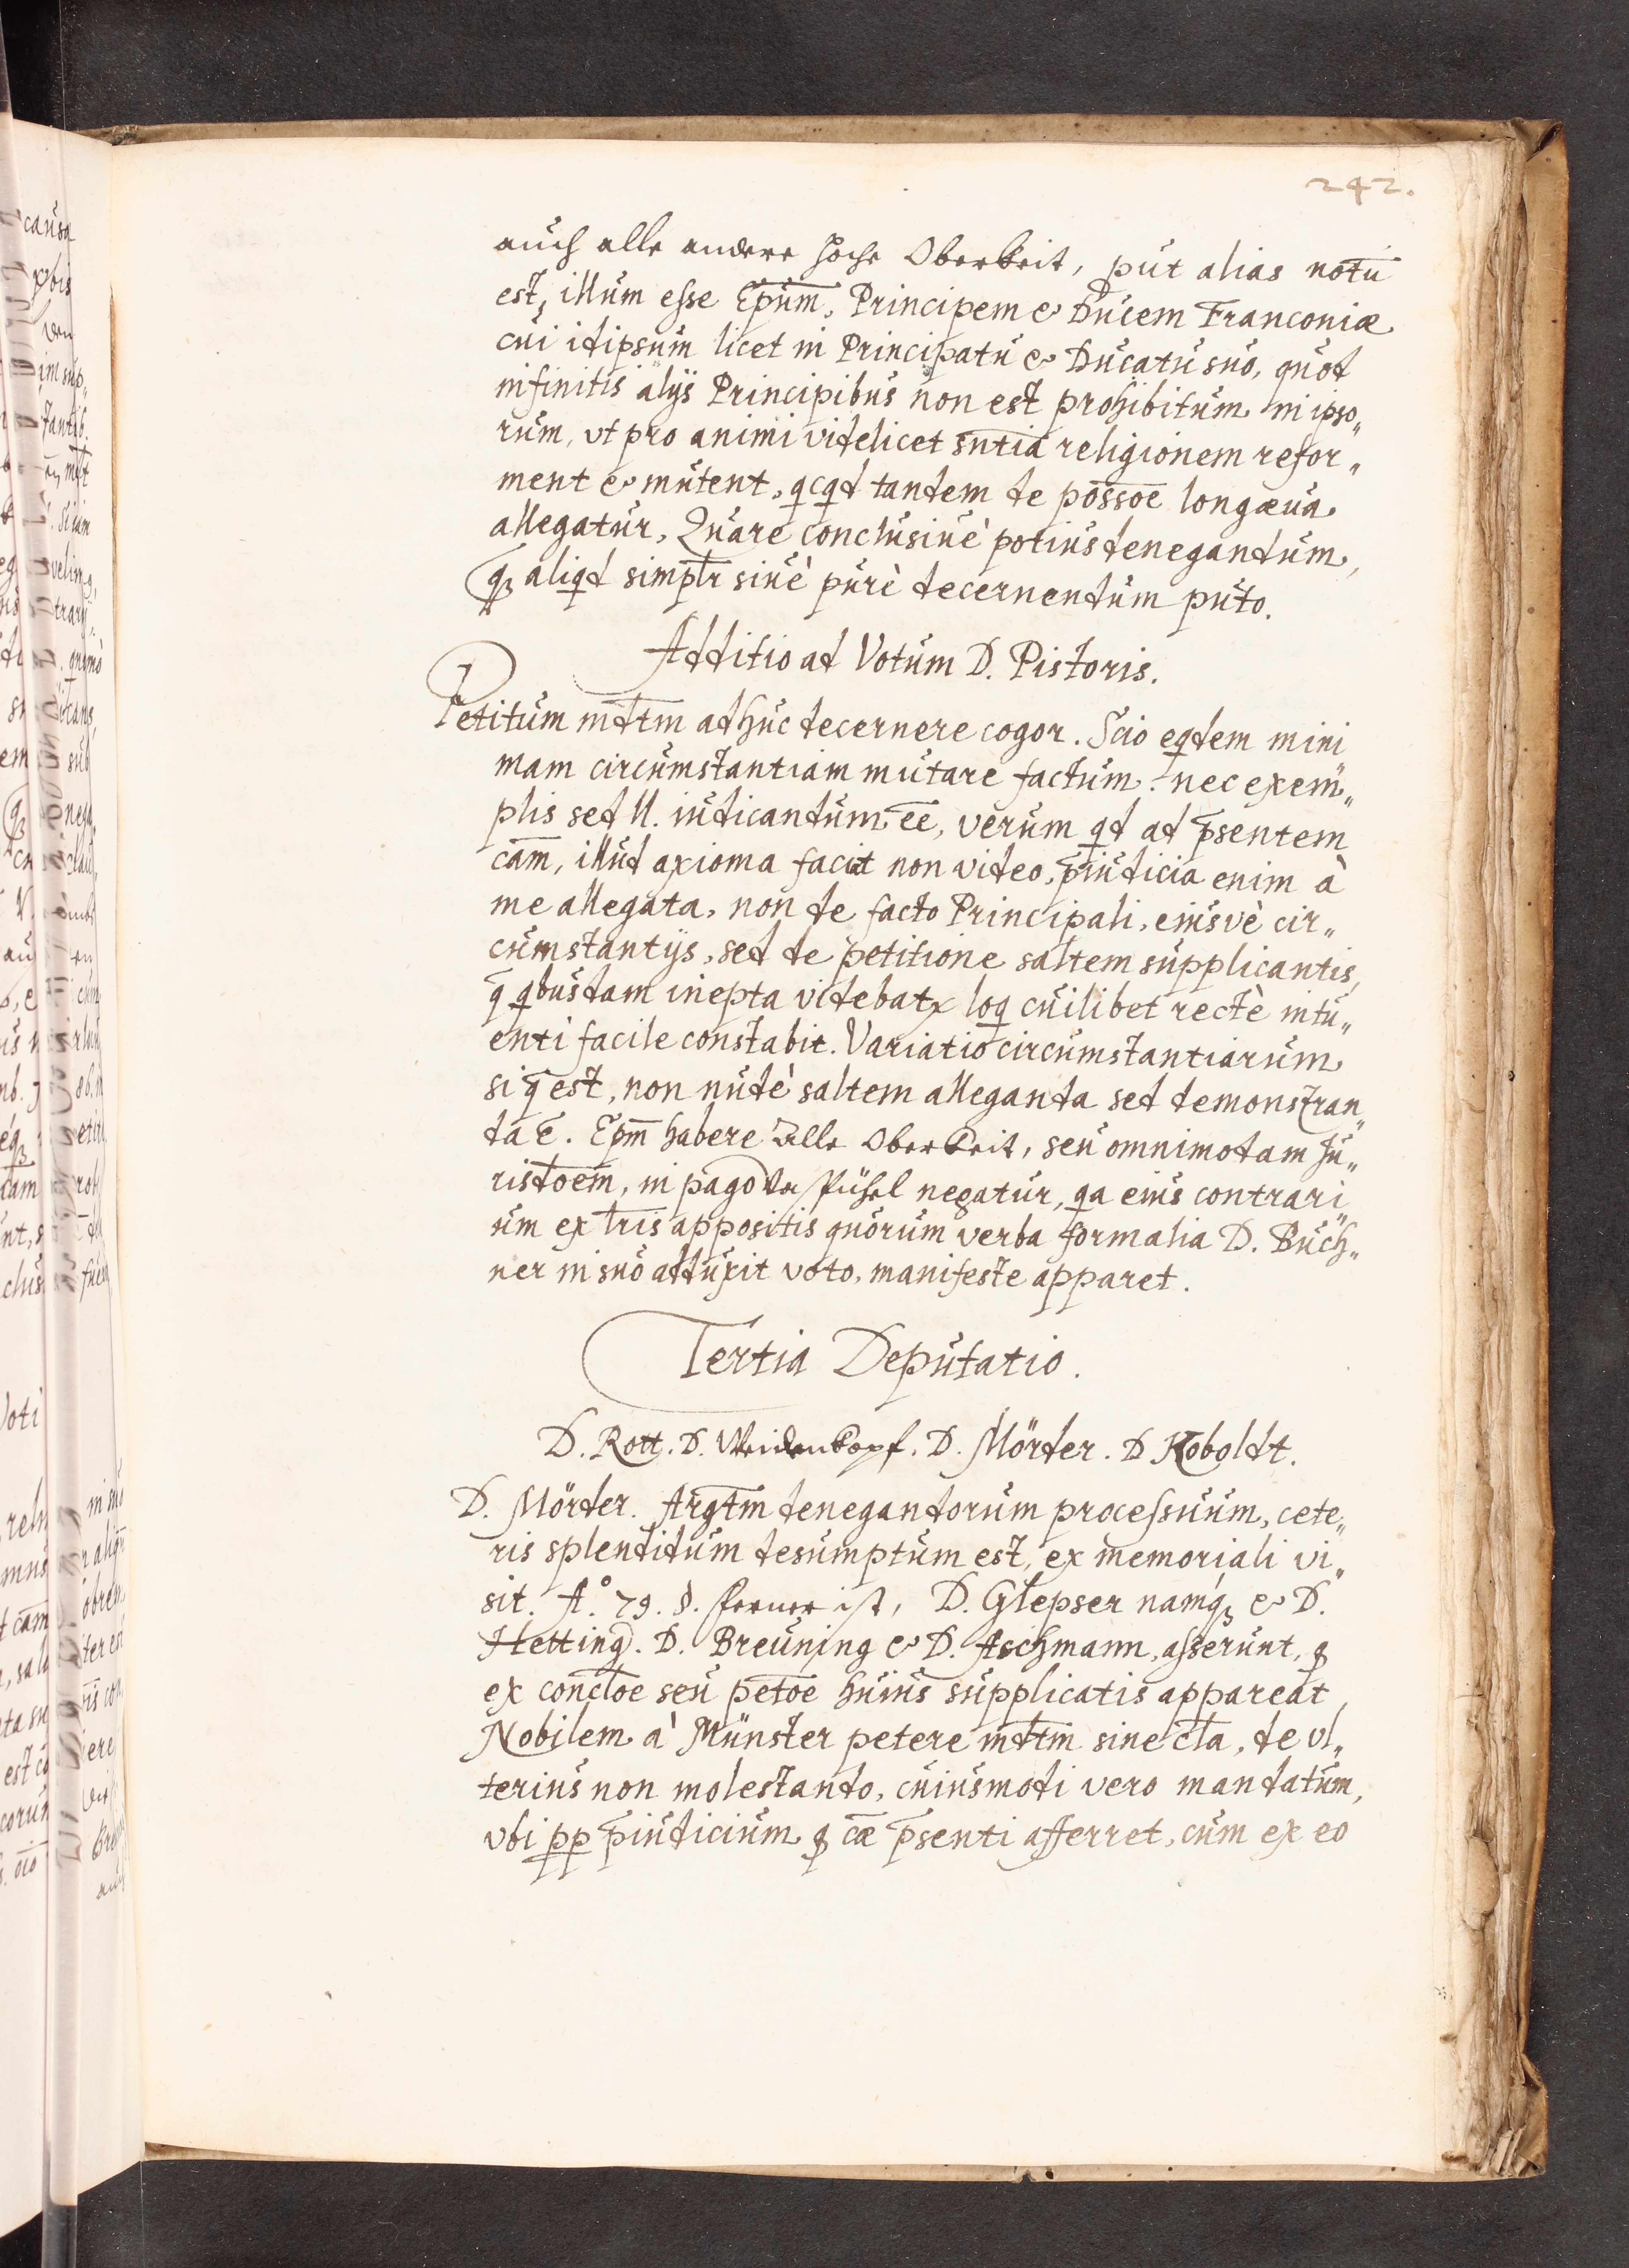 242.
auch alle andere hoche Oberkeit, put alias notū
est, illum esse Ep̄um, Principem & Ducem Franconiæ
cui idipsum licet in Principatu & Ducatu suo, quod
infinitis alijs Principibus non est prohibitum in ipso„
rum, vt pro animi videlicet sn̄tia religionem refor„
ment & mutent, qcqd tandem de poss̄oe longæua
allegatur, Quare conclusiuè potius denegandum,
qꝫ aliqd simpl̄r siuè purè decernendum puto.
Additio ad Votum D. Pistoris.
Petitum md̄tm adhuc decernere cogor. Scio eqdem mini„
mam circumstantiam mutare factum. nec exem„
plis sed ll. iudicandum ēē, verum qd ad p̄sentem
cām, illud axioma faciat non video, p̄iudicia enim à
me allegata, non de facto Principali, eiusvè cir„
cumstantijs, sed de petitione saltem supplicantis,
q̄ qbusdam inepta videbatr loq cuilibet rectè intu„
enti facile constabit. Variatio circumstantiarum
si q̄ est, non nudè saltem alleganda sed demonstran„
da ē. Ep̄m habere Alle Oberkeit, seu omnimodam Ju„
risd̄oem, in pago der Pühel negatur, qa eius contrari„
um ex l̄ris appositis quorum verba formalia D. Buch„
ner in suo adduxit voto, manifeste apparet.
Tertia Deputatio.
D. Rott. D. Weidenkopf. D. Mörder. D Koboldt.
D. Mörder. Arḡtm denegandorum processuum, cete„
ris splendidum desumptum est, ex memoriali vi„
sit. A.° 79. §. ferner ist, D. Glepser namqꝫ & D.
Hetting. D. Breuning & D. Aschmann, asserunt, q
ex conc̄loe seu pet̄oe huius supplicatis appareat
Nobilem à Münster petere md̄tm sine c̄la, de vl„
terius non molestando, cuiusmodi vero mandatum,
vbi pp p̄iudicium q cǣ p̄senti afferret, cum ex eo